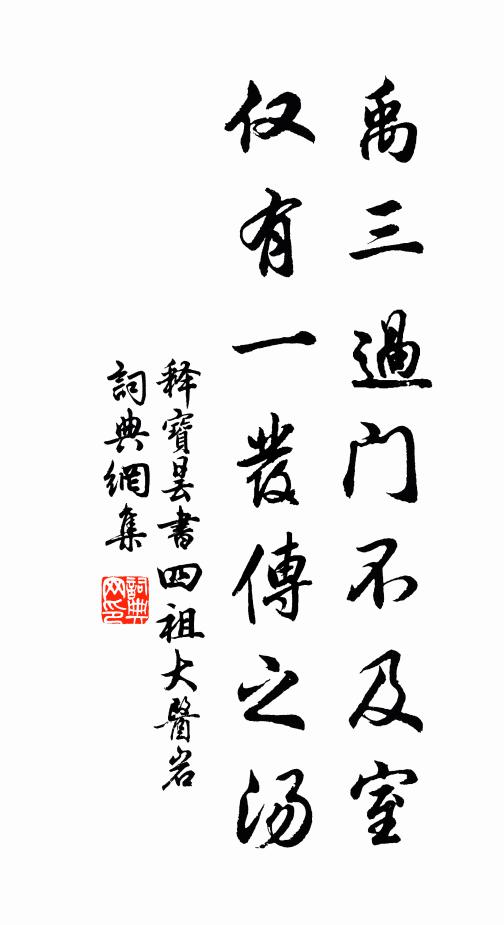 禹三過门不及室
仅有一發傳之汤
释寶曇書四祖大醫岩
詞典網集
詞典网印